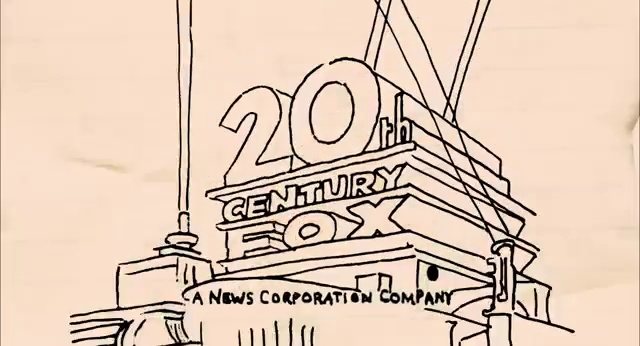 20th
CENTURY
FOX
A NEWS CORPORATION COMPANY